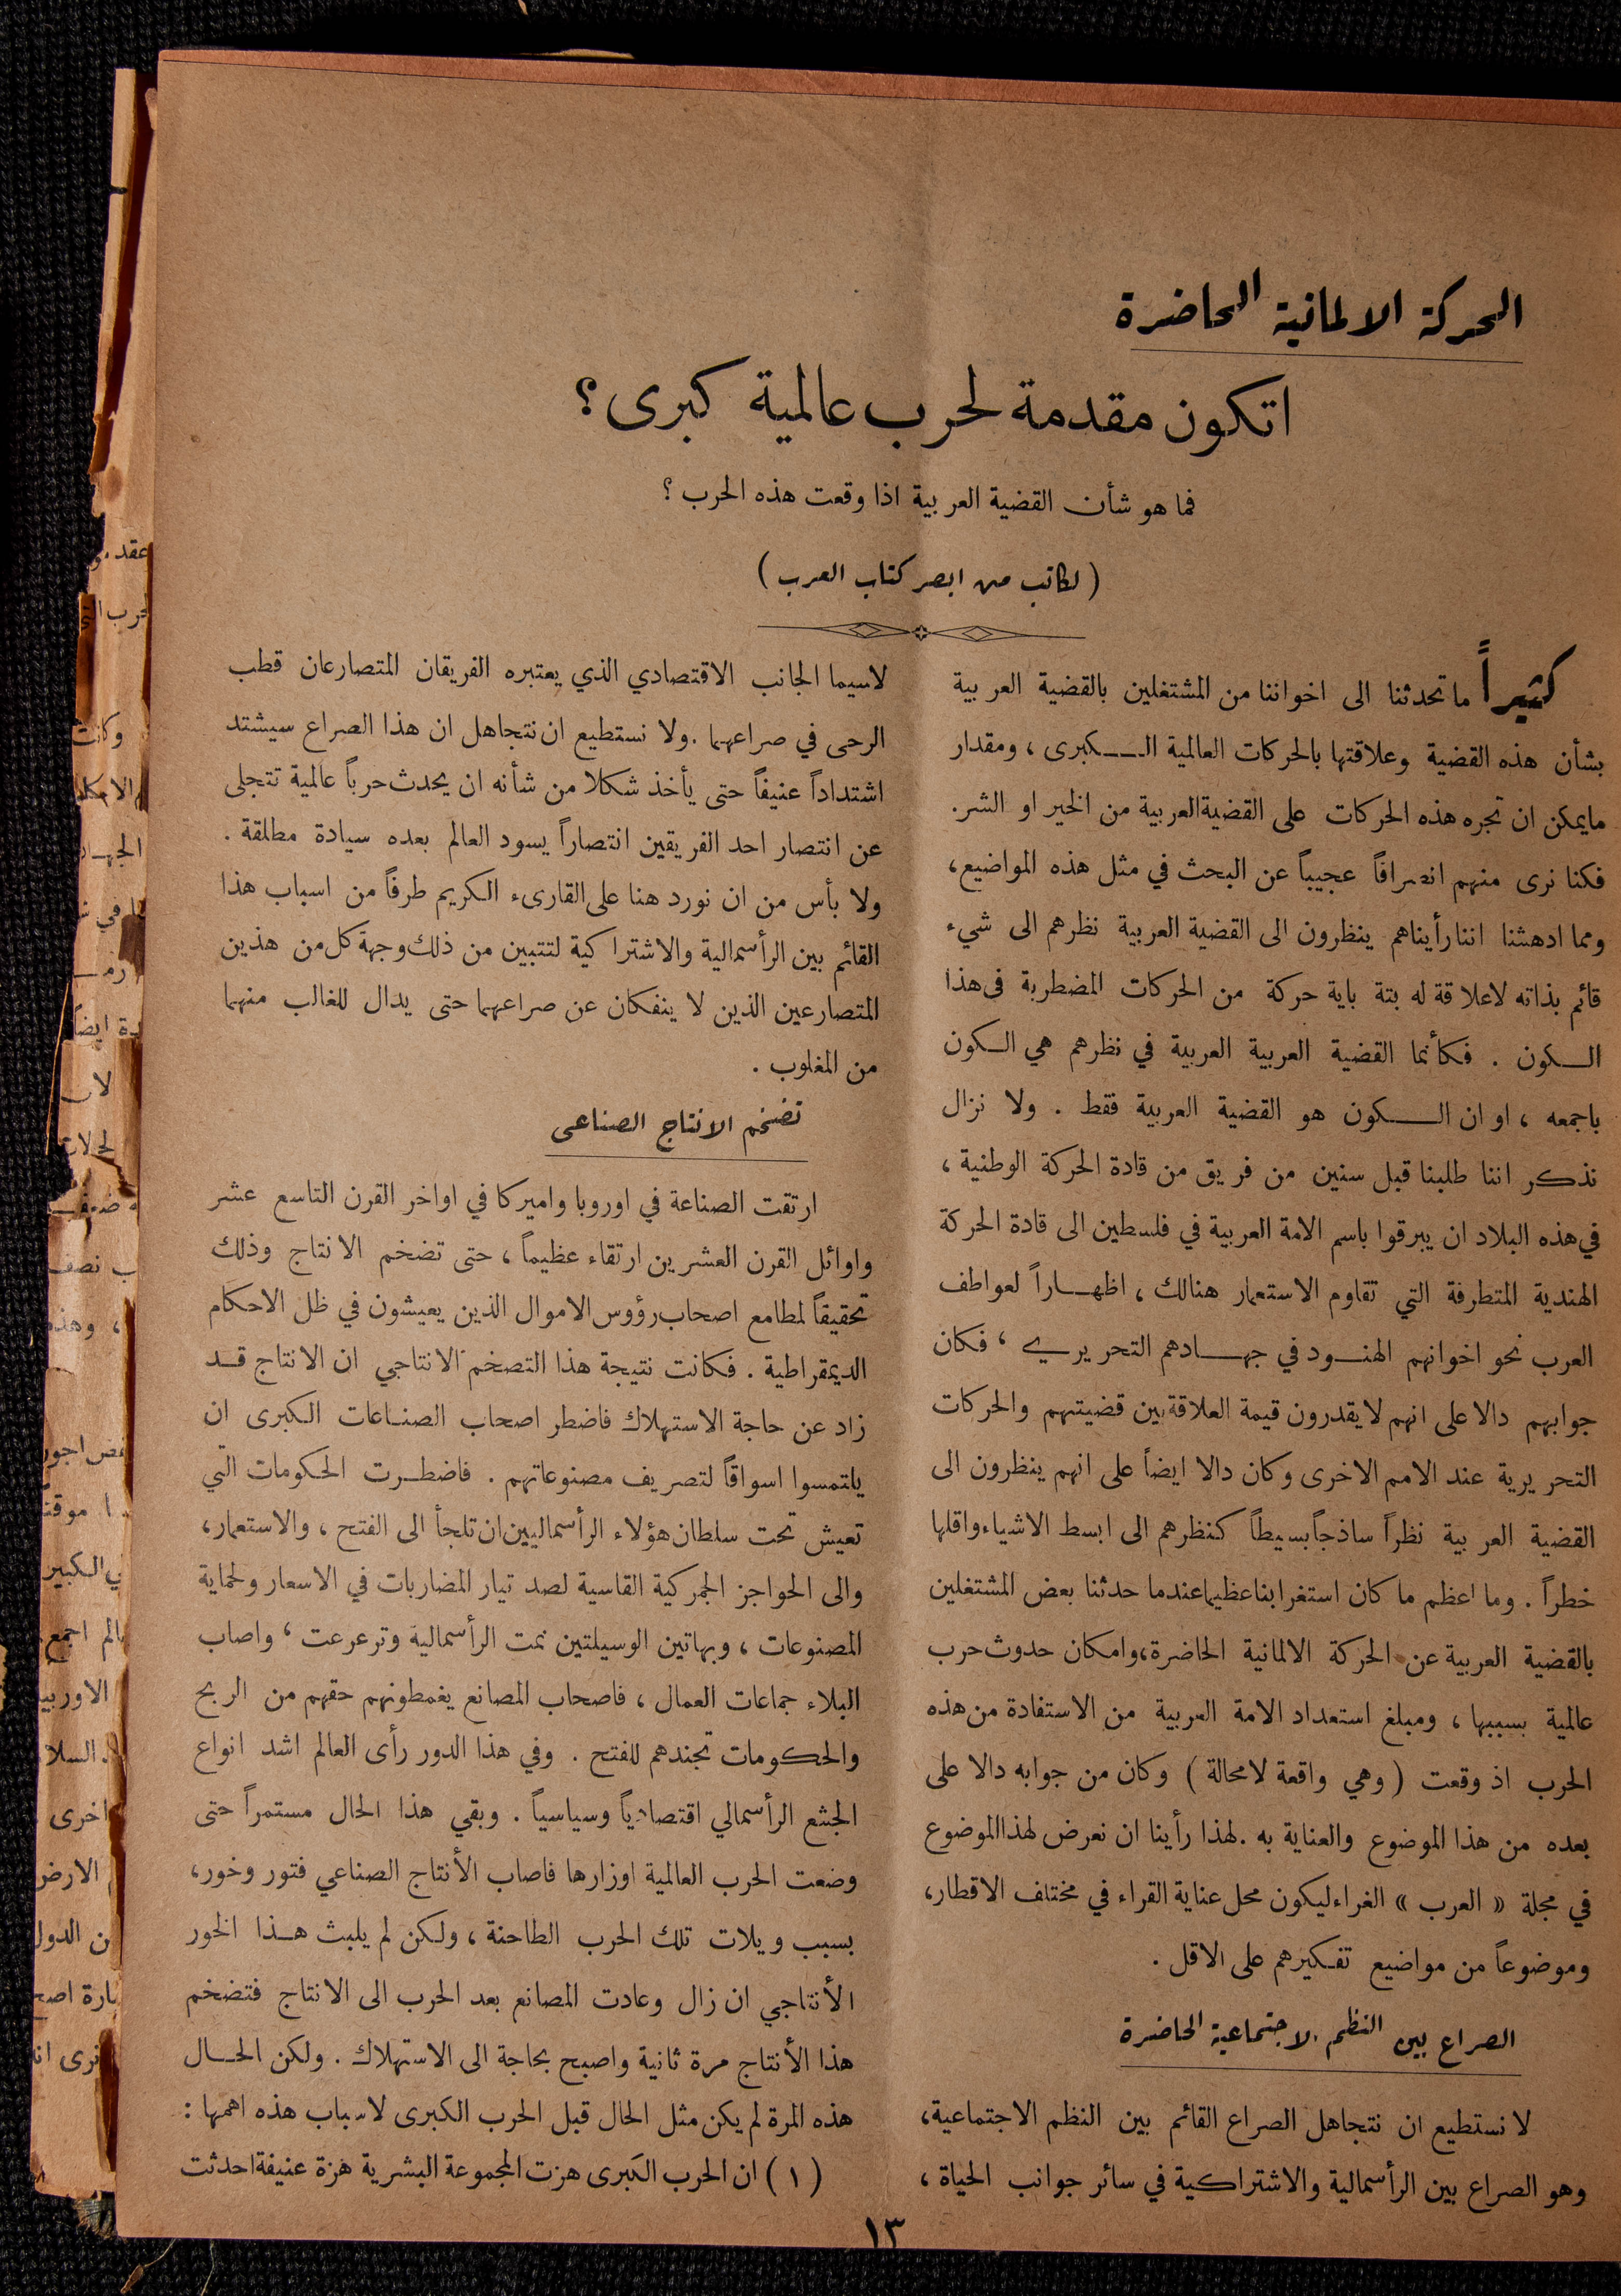 الحركة الالمانية الحاضرة
اتكون مقدمة لحرب عالمية كبرى؟
فما هو شأن القضية العربية اذا وقعت هذه الحرب ؟
(لكاتب من ابصر كتاب العرب)
كثيراً ما تحدثنا الى اخواننا من المشتغلين بالقضية العربية
بشأن هذه القضية وعلاقتها بالحركات العالمية الكبرى ، ومقدار
مايمكن ان تجره هذه الحركات على القضية العربية من الخير او الشر.
فكنا نرى منهم انصرافاً عجيباً عن البحث في مثل هذه المواضيع،
ومما ادهشنا اننا رأيناهم ينظرون الى القضية العربية نظرهم الى شيء
قائم بذاته لاعلاقة له بتة باية حركة من الحركات المضطربة في هذا
الكون . فكأنما القضية العربية العربية في نظرهم هي الكون
باجمعه ، او ان الكون هو القضية العربية فقط . ولا نزال
نذكر اننا طلبنا قبل سنين من فريق من قادة الحركة الوطنية ،
في هذه البلاد ان يبرقوا باسم الامة العربية في فلسطين الى قادة الحركة
الهندية المتطرفة التي تقاوم الاستعمار هنالك ، اظهاراً لعواطف
العرب نحو اخوانهم الهنود في جهادهم التحريري ، فكان
جوابهم دالا على انهم لا يقدرون قيمة العلاقة بين قضيتهم والحركات
التحريرية عند الامم الاخرى وكان دالا ايضاً على انهم ينظرون الى
القضية العربية نظراً ساذجاً بسيطاً كنظرهم الى ابسط الاشياء واقلها
خطراً . وما اعظم ما كان استغرابنا عظيما عندما حدثنا بعض المشتغلين
بالقضية العربية عن الحركة الالمانية الحاضرة، وامكان حدوث حرب
عالمية بسببها ، ومبلغ استعداد الامة العربية من الاستفادة من هذه
الحرب اذ وقعت ( وهي واقعة لامحالة ) وكان من جوابه دالا على
بعده من هذا الموضوع والعناية به . لهذا رأينا ان نعرض لهذا الموضوع
في مجلة « العرب » الغراء ليكون محل عناية القراء في مختلف الاقطار،
وموضوعاً من مواضيع تفكيرهم على الاقل .
الصراع بين النظم الاجتماعية الحاضرة
لا نستطيع ان نتجاهل الصراع القائم بين النظم الاجتماعية،
وهو الصراع بين الرأسمالية والاشتراكية في سائر جوانب الحياة ،
لاسيما الجانب الاقتصادي الذي يعتبره الفريقان المتصارعان قطب
الرحى في صراعهما . ولا نستطيع ان نتجاهل ان هذا الصراع سيشتد
اشتداداً عنيفاً حتى يأخذ شكلا من شأنه ان يحدث حرباً عالمية تتجلى
عن انتصار احد الفريقين انتصاراً يسود العالم بعده سيادة مطلقة .
ولا بأس من ان نورد هنا على القارىء الكريم طرفاً من اسباب هذا
القائم بين الرأسمالية والاشتراكية لتتبين من ذلك وجهة كل من هذين
المتصارعين الذين لا ينفكان عن صراعهما حتى يدال للغالب منهما
من المغلوب .
تضخم الانتاج الصناعى
ارتقت الصناعة في اوروبا واميركا في اواخر القرن التاسع عشر
واوائل القرن العشرين ارتقاء عظيماً ، حتى تضخم الانتاج وذلك
تحقيقاً لمطامع اصحاب رؤوس الاموال الذين يعيشون في ظل الاحكام
الديمقراطية . فكانت نتيجة هذا التصخم الانتاجي ان الانتاج قد
زاد عن حاجة الاستهلاك فاضطر اصحاب الصناعات الكبرى ان
يلتمسوا اسواقاً لتصريف مصنوعاتهم . فاضطرت الحكومات التي
تعيش تحت سلطان هؤلاء الرأسماليين ان تلجأ الى الفتح ، والاستعمار،
والى الحواجز الجمركية القاسية لصد تيار المضاربات في الاسعار ولحماية
المصنوعات ، وبهاتين الوسيلتين نمت الرأسمالية وترعرعت ، واصاب
البلاء جماعات العمال ، فاصحاب المصانع يغمطونهم حقهم من الربح
والحكومات تجندهم للفتح . وفي هذا الدور رأى العالم اشد انواع
الجشع الرأسمالي اقتصادياً وسياسياً . وبقي هذا الحال مستمراً حتى
وضعت الحرب العالمية اوزارها فاصاب الأنتاج الصناعي فتور وخور،
بسبب ويلات تلك الحرب الطاحنة ، ولكن لم يلبث هذا الخور
الأنتاجي ان زال وعادت المصانع بعد الحرب الى الانتاج فتضخم
هذا الأنتاج مرة ثانية واصبح بحاجة الى الاستهلاك . ولكن الحال
هذه المرة لم يكن مثل الحال قبل الحرب الكبرى لاسباب هذه اهمها :
( ١ ) ان الحرب الكبرى هزت المجموعة البشرية هزة عنيفة احدثت
١٣